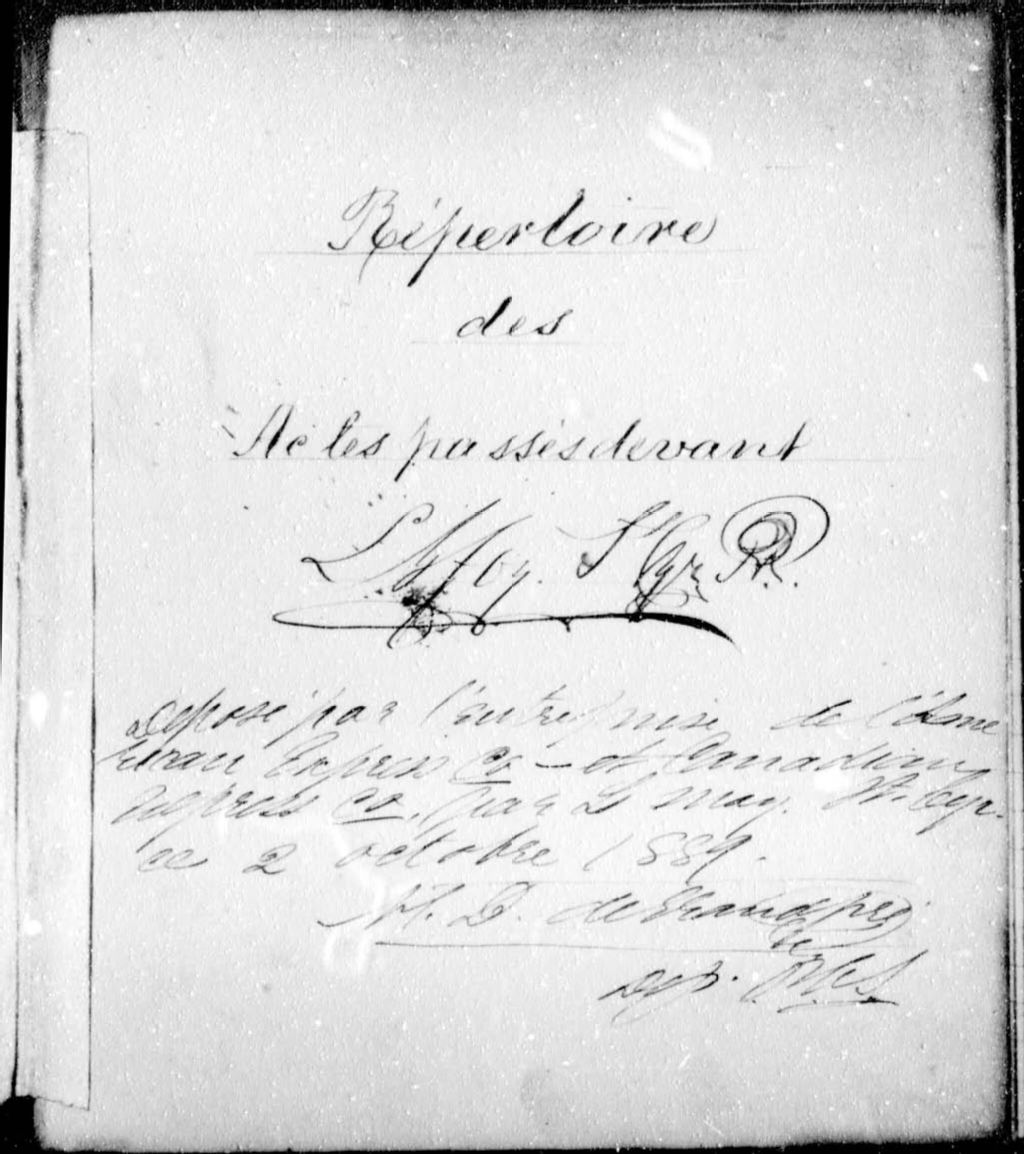 Répertoire
des
Actes passés devant
St Cyr
Déposé par l'entremise de l'Ame
rican Express Co – et Canadian
Express Co. par L May. St. Cyr.
ce 2 octobre 1889.
D. de Grandpré
Dép. P.C.S.